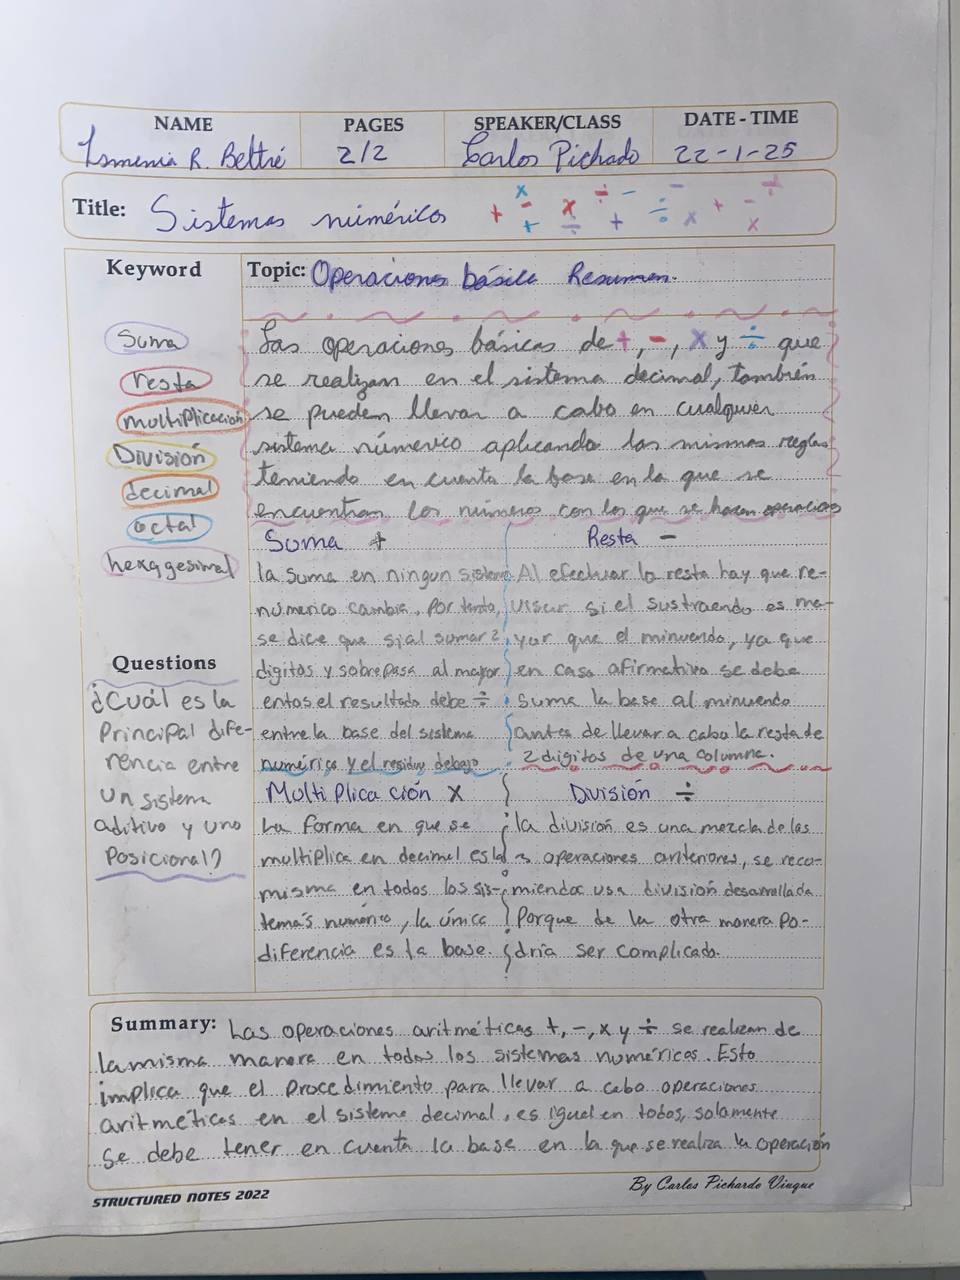 NAME PAGES SPEAKER/CLASS DATE - TIME
Ismenia R. Beltré 2/2 Carlos Pichado 22-1-25
Title: Sistemas numéricos
Keyword
Suma
resta
multiplicación
División
decimal
octal
hexaggesimal
Questions
¿Cuál es la
Principal dife-
rencia entre
un sistema
aditivo y uno
Posicional?
Topic: Operaciones básica Resumen.
Las operaciones básicas de +, -, x y ÷ que
se realizan en el sistema decimal, también
se pueden llevar a cabo en cualquier
sistema númerico aplicando las mismas reglas
teniendo en cuenta la base en la que se
encuentran los números con los que se hacen operacios
Suma +
la suma en ningun sistema
númerico cambia, por tanto,
se dice que si al sumar 2
digitos y sobrepasa al mayor
entos el resultado debe ÷
entre la base del sistema
numérico y el residuo debajo
Resta -
Al efectuar la resta hay que re-
visar si el sustraendo es ma-
yor que el minuendo, ya que
en caso afirmativo se debe
suma la base al minuendo
antes de llevar a cabo la resta de
2 digitos de una columna.
Multiplicación x
La forma en que se
multiplica en decimal es la
misma en todos los sis-
temas numérico, la única
diferencia es la base.
División ÷
la división es una mezcla de las
operaciones anteriores, se reco-
miendas usa división desarrollada
Porque de la otra manera po-
dría ser complicado.
Summary: Las operaciones aritméticas +, -, x y ÷ se realizan de
la misma manera en todos los sistemas numéricos. Esto
implica que el procedimiento para llevar a cabo operaciones
aritméticas en el sistema decimal, es igual en todos, solamente
se debe tener en cuenta la base en la que se realiza la operación
STRUCTURED NOTES 2022
By Carlos Pichardo Viuque